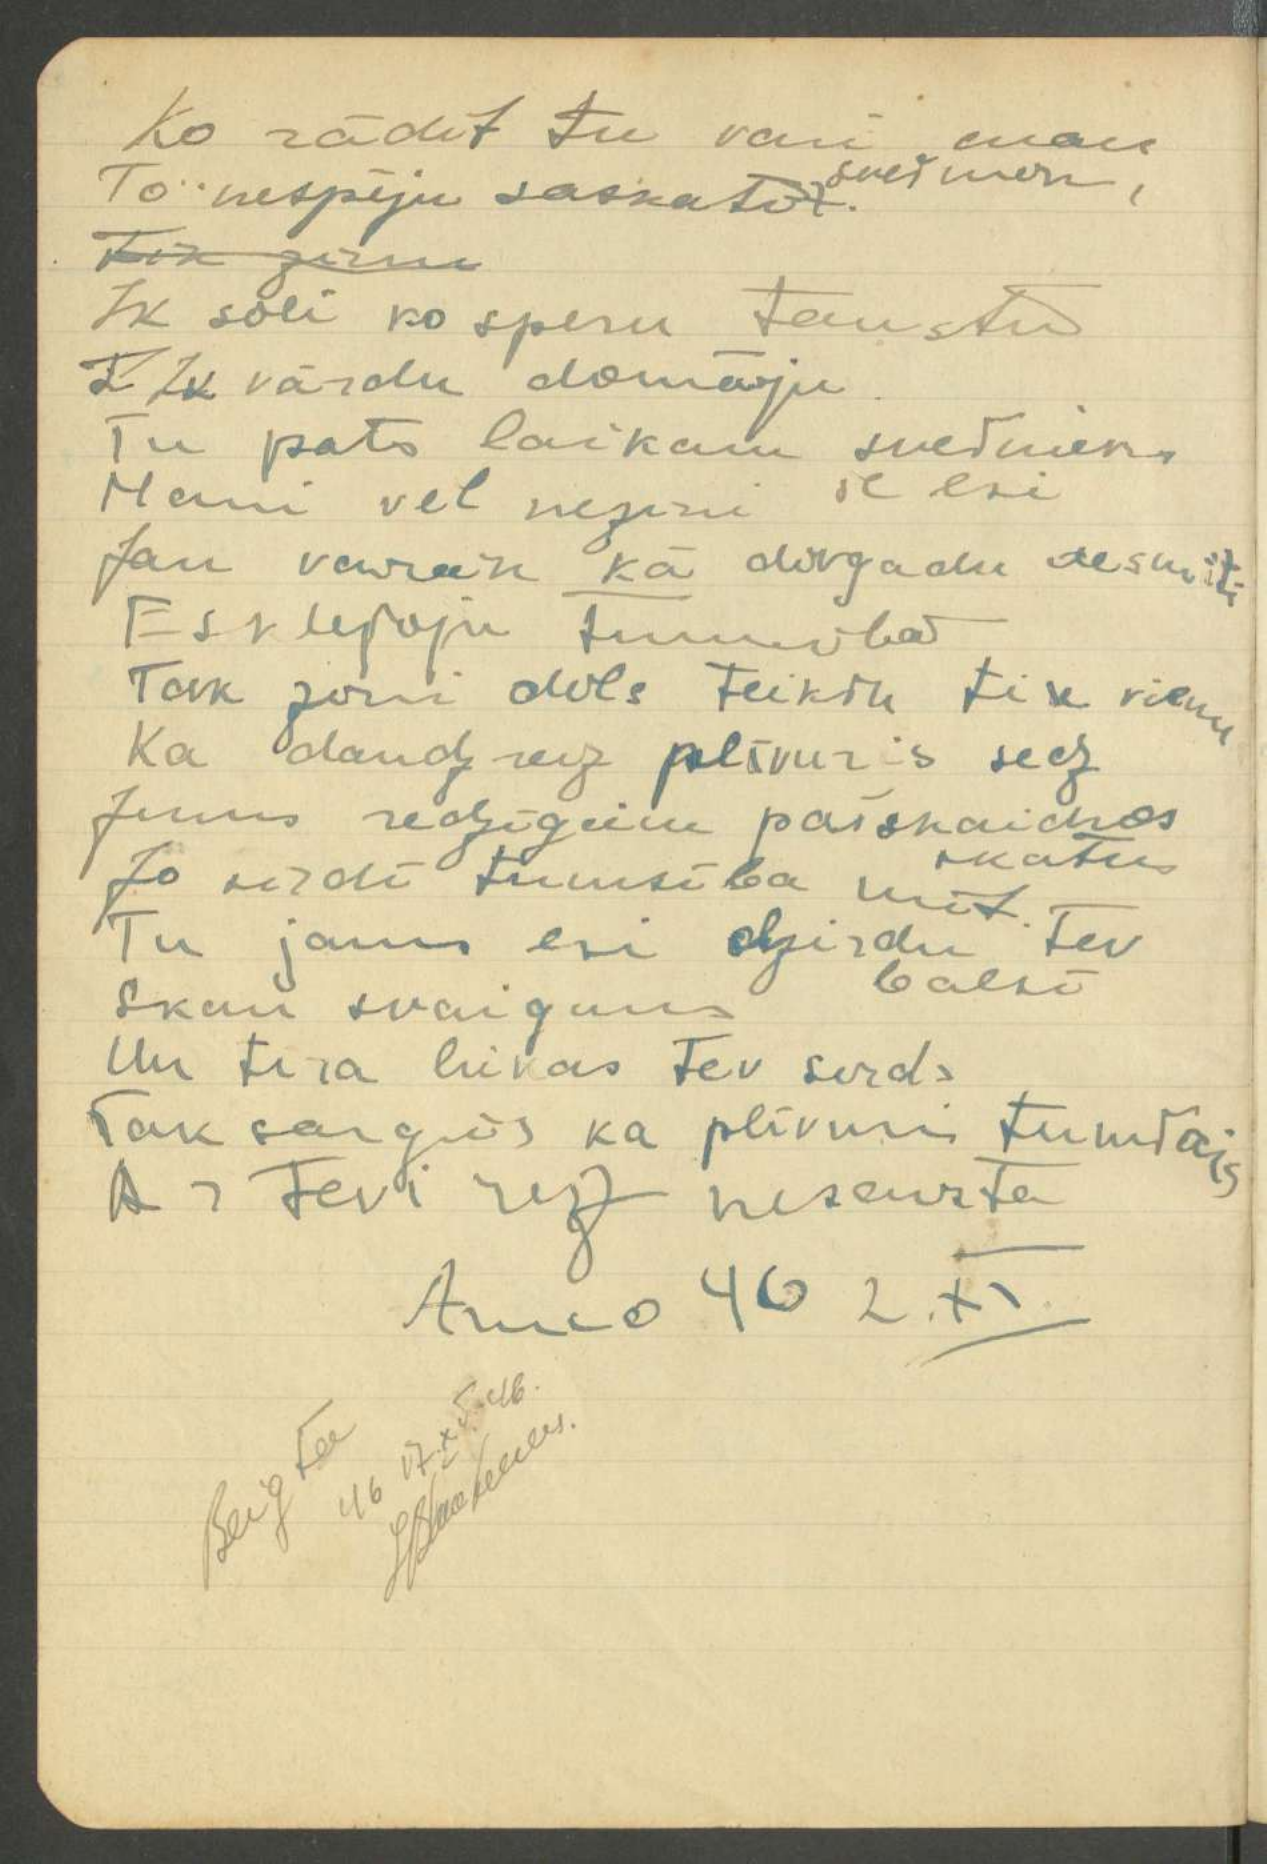 Ko rādīt tu vari man
svešinien,
To nespēju saskatīt.
Tik zinu
Ik soli ko speru taustu
Ik vārdu domāju
Tu pats laikam svešinieks
še esi
Mani vēl nezini
Jau vairāk kā divgadu desmiti
Es klejoju tumsībā
Tak zini dēls teikšu tik vienu
Ka daudzreiz plīvuris sedz
Jums redzīgiem pašskaidros
skatus
Jo sirdī tumsība mīt.
Tu jauns esi dzirdu Tev
balsī
Skan svaigums
Un tīra liekas Tev sirds
Tak sargies ka plīvuris tumšais
Ar Tevi reiz nesausta
Anno 46 2.XI
Beigta
46 17.X 46.